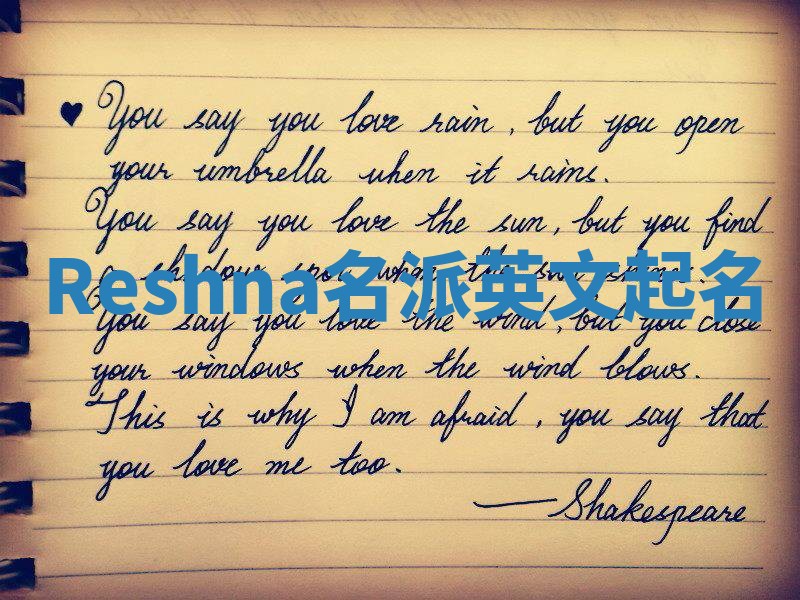 ♥ You say you love rain, but you open
your umbrella when it rains.
You say you love the sun, but you find
a shadow spot when the sun shines.
Reshna名派英文起名
You say you love the wind, but you close
your windows when the wind blows.
This is why I am afraid, you say that
you love me too.
—Shakespeare